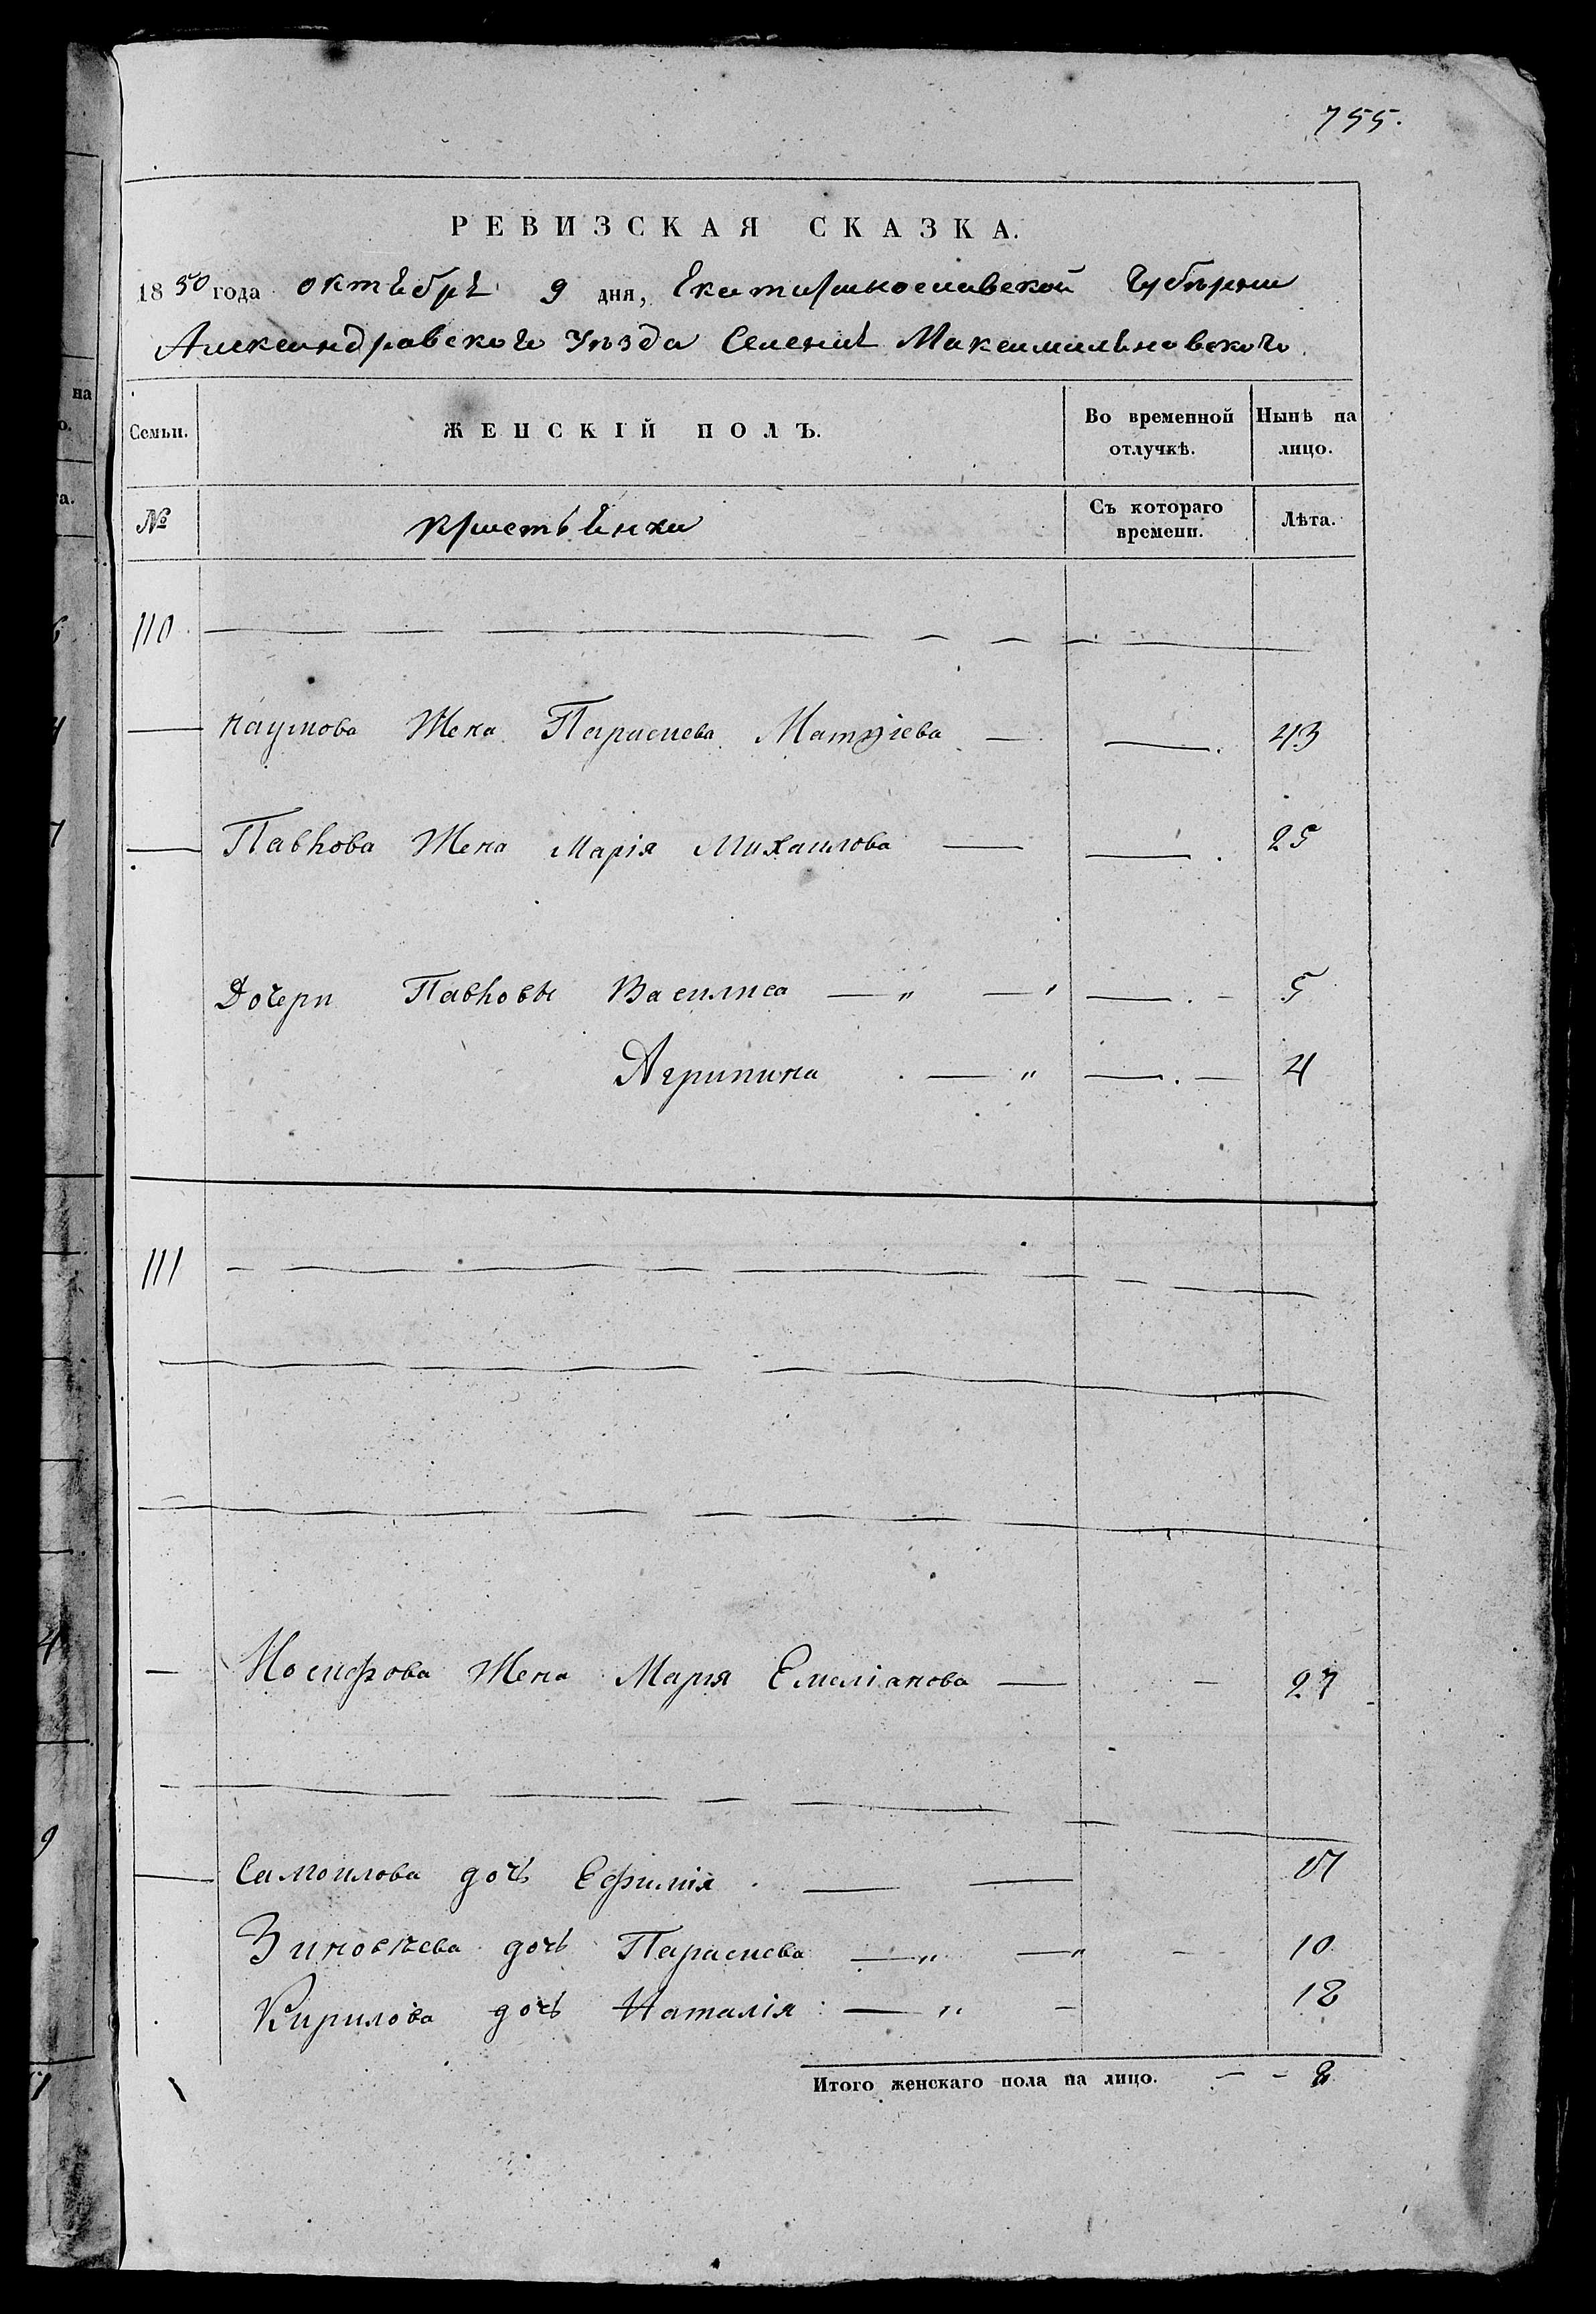 755.
РЕВИЗСКАЯ СКАЗКА.
1850 года октября 9 дня, Екатириновлавской Губернии
Александровского Уѣзда Селения Максимильяновского.
Семьи. ЖЕНСКІЙ ПОЛЪ. Во временной отлучкѣ. Нынѣ на лицо.
№ Кристьянки Съ котораго времени. Лѣта.
110
Наумова Жена Параскева Матвіева — — 43
Павлова Жена Марія Михаилова — — 25
Дочери Павловы Василиса —„ —„ — 5
Агрипина —„ — 4
111
Иосифова Жена Мария Емеліанова — — 27
Самоилова дочь Ефимія — — 17
Зиновьева дочь Параскева —„ —„ — 10
Кирилова дочь Наталія —„ — 12
Итого женскаго пола на лицо. — —